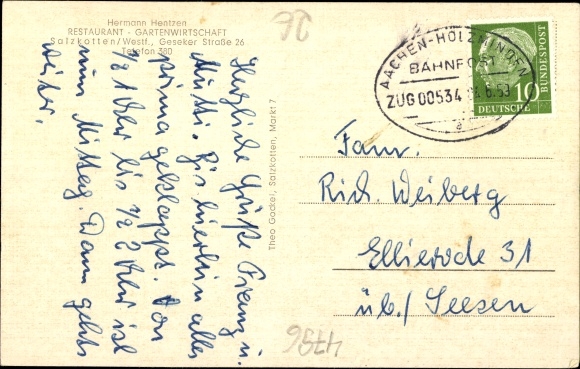 Hermann Hentzen
RESTAURANT - GARTENWIRTSCHAFT
Salzkotten/Westf., Geseker Straße 26
Telefon 380
Herzliche Grüße Franz u.
Mutti. Bis hierhin alles
prima geklappt. Von
1/2 1 Uhr bis 1/2 2 Uhr ist
nun Mittag. Dann gehts
weiter.
Theo Gockel, Salzkotten, Markt 7
AACHEN-HOLZMINDEN
BAHNPOST
ZUG 00534
a
10
DEUTSCHE BUNDESPOST
Fam.
Rich. Weiberg
Ellierode 31
üb./ Seesen
26
4796